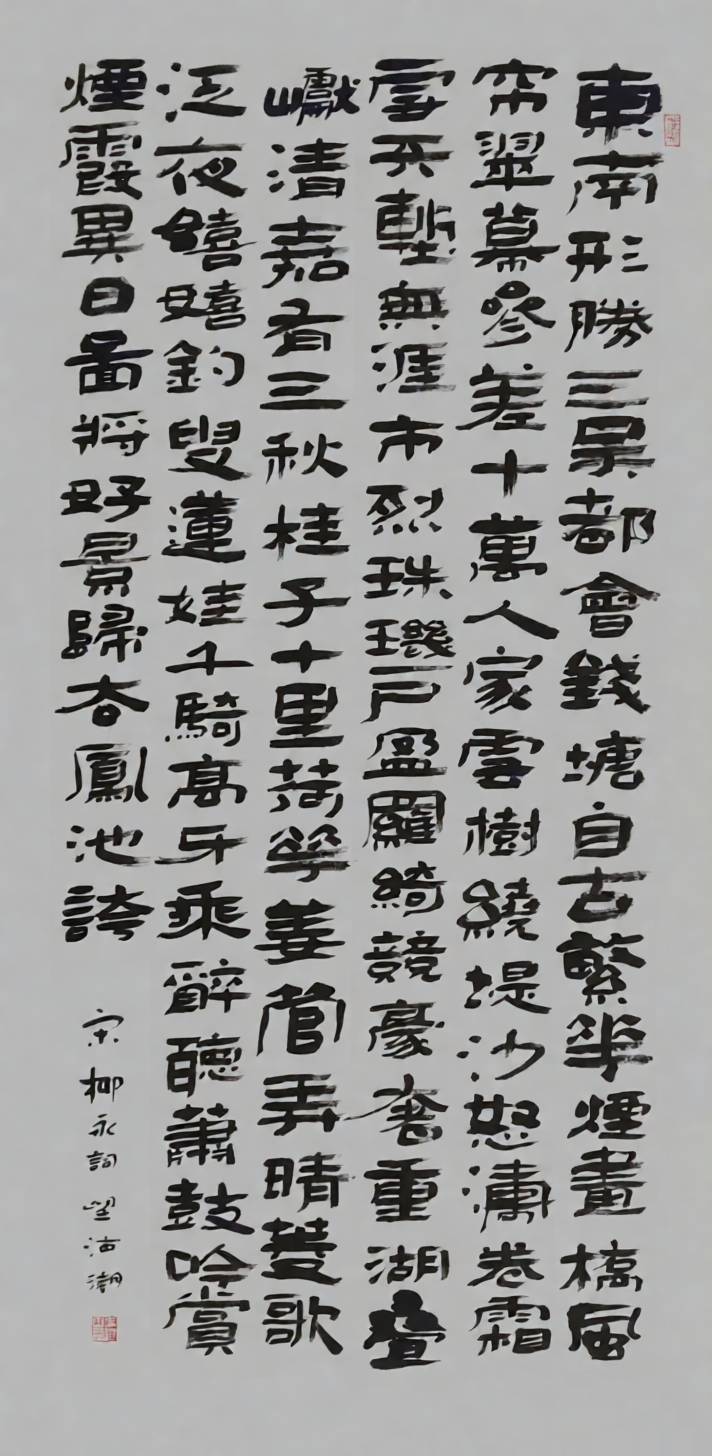 東南形勝三吳都會錢塘自古繁華煙畫橋風
帘翠幕參差十萬人家雲樹繞堤沙怒濤卷霜
雪天塹無涯市烈珠璣戶盈羅綺競豪奢重湖疊
巘清嘉有三秋桂子十里荷華羌管弄晴菱歌
泛夜嬉嬉釣叟蓮娃千騎高牙乘醉聽蕭鼓吟賞
煙霞異日圖將好景歸去鳳池誇
宋柳永詞望海潮